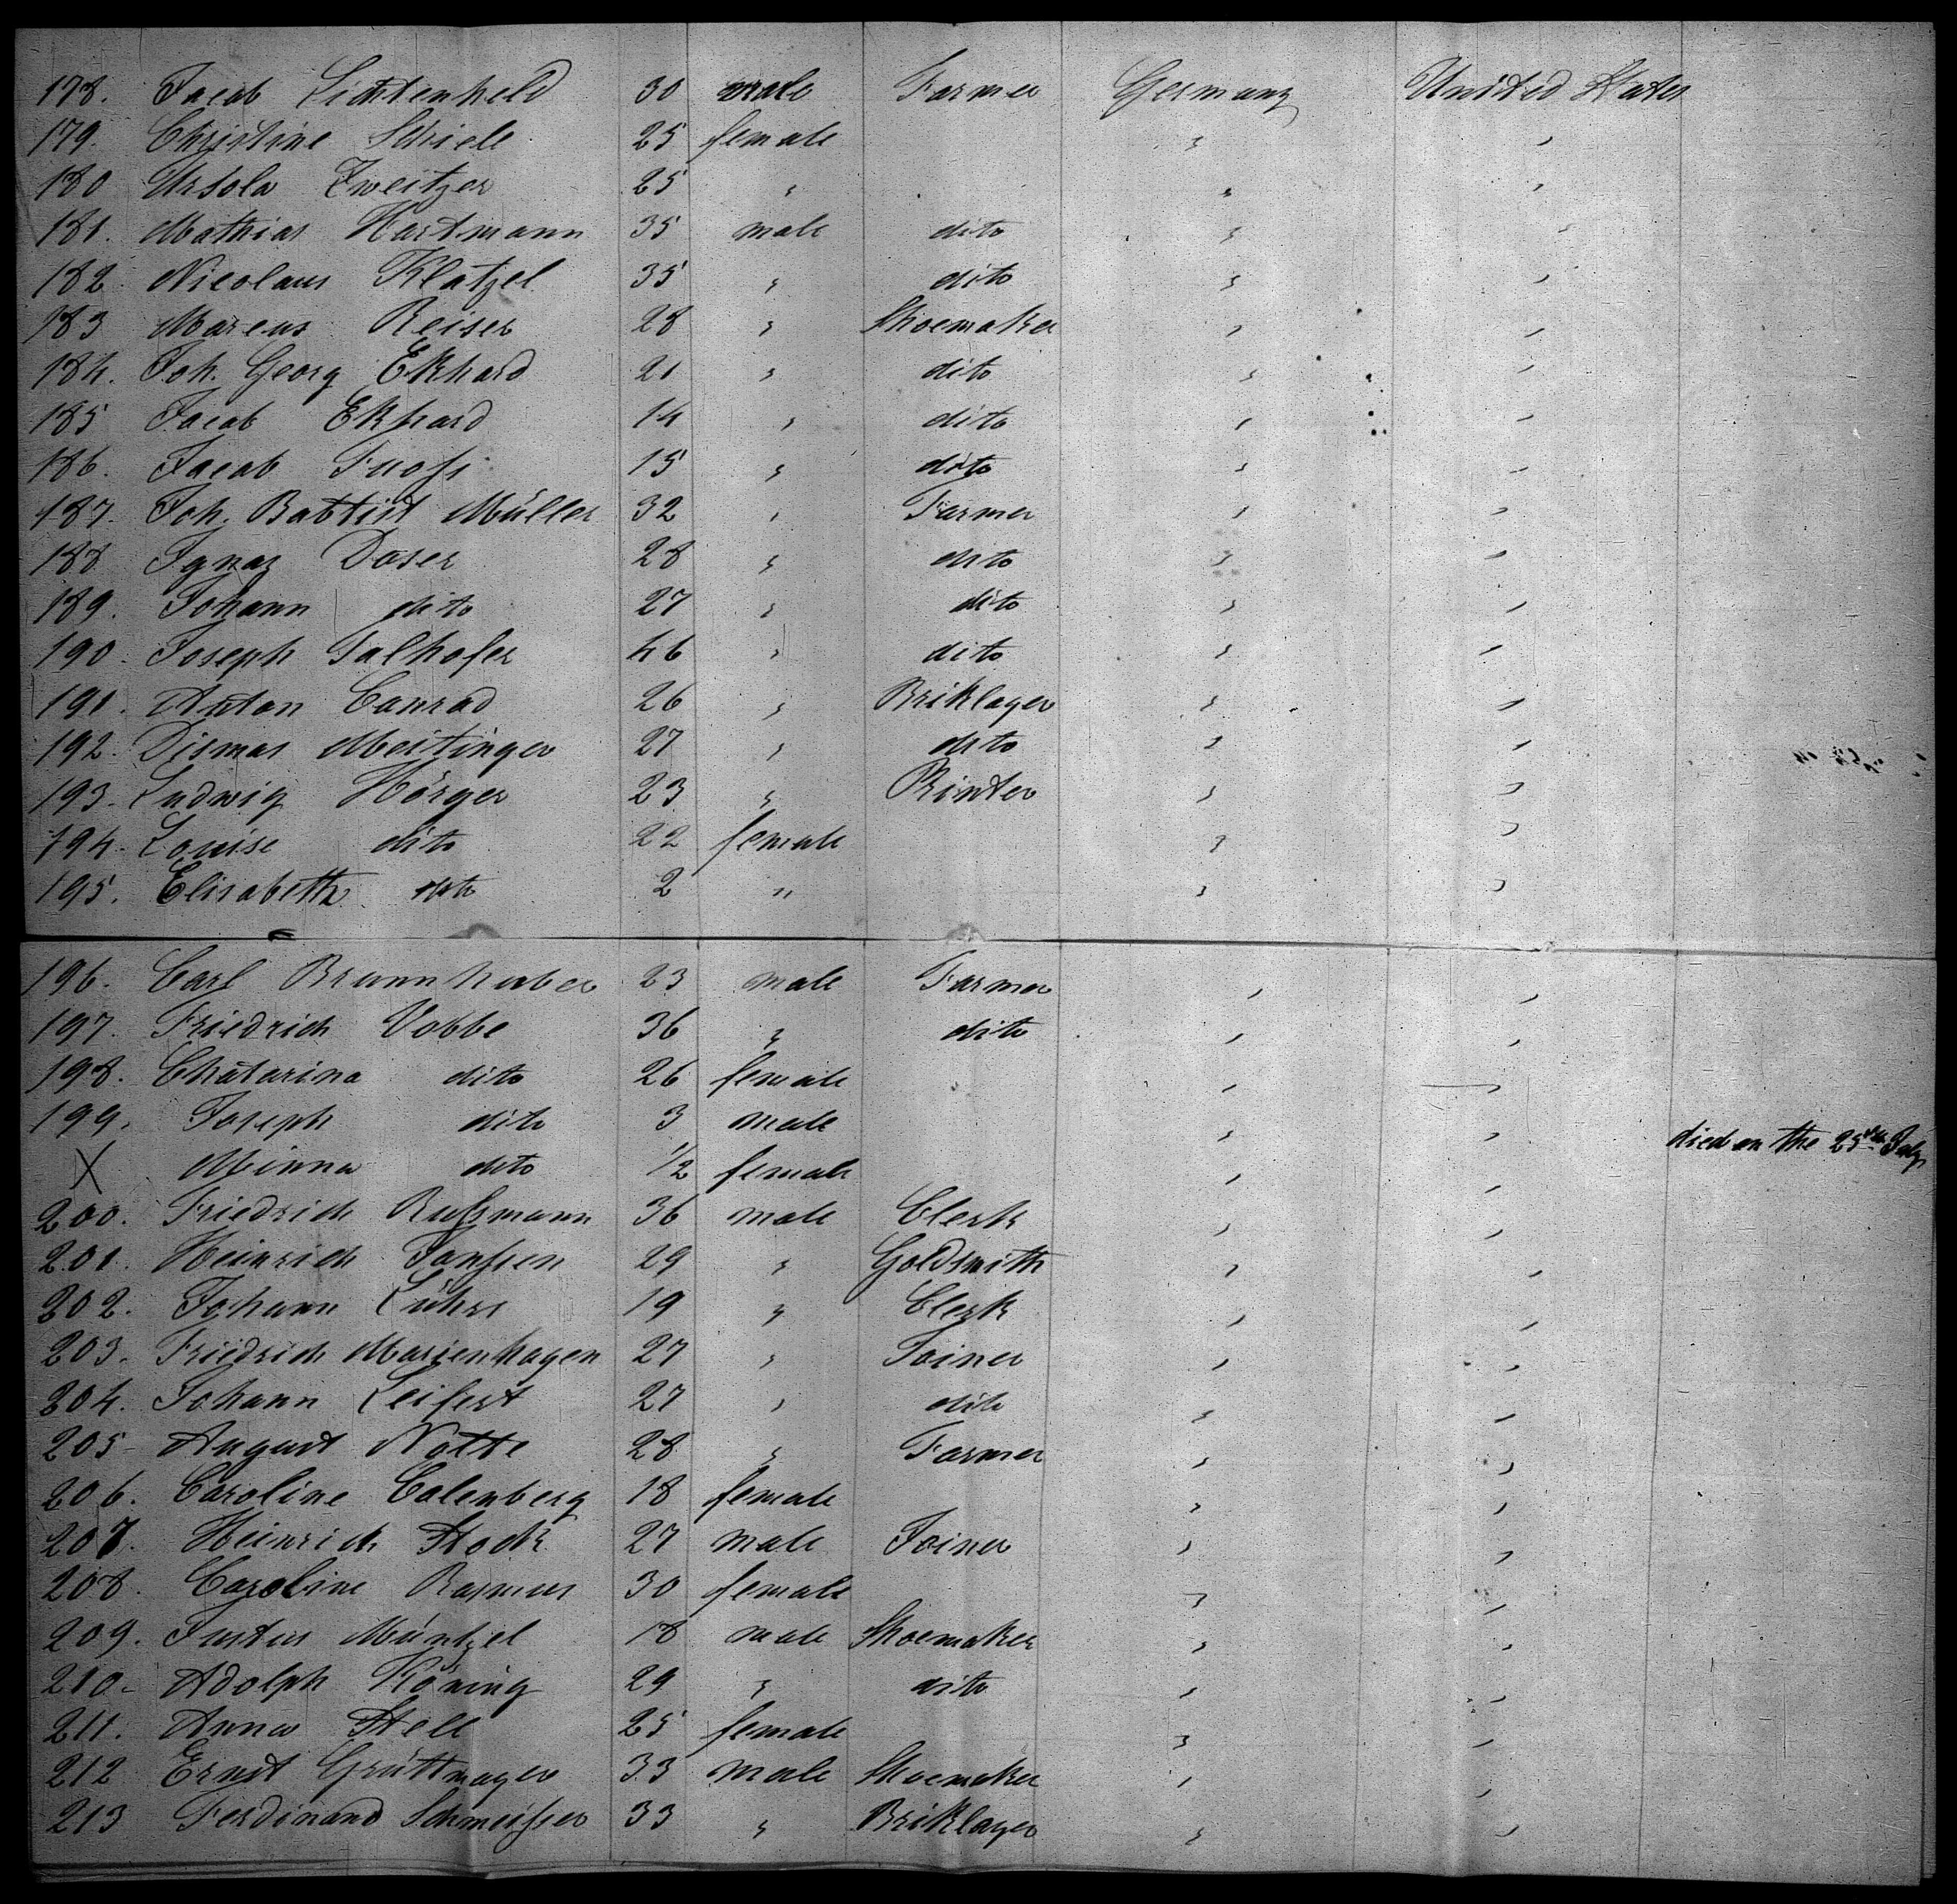 178. Jacob Lichtenheld 30 male Farmer Germany United States
179. Christine Schiele 25 female " "
180 Ursola Zweitzer 25 " " "
181. Mathias Hartmann 35 male dito " "
182. Nicolaus Klatzel 35 " dito " "
183 Marcus Reiser 28 " Shoemaker " "
184. Joh. Georg Ekhard 21 " dito " "
185 Jacob Ekhard 14 " dito " "
186. Jacob 15 " dito " "
187. Joh. Babtist Müller 32 " Farmer " "
188 Ignaz Doser 28 " dito " "
189. Johann dito 27 " dito " "
190. Joseph Talhofer 46 " dito " "
191. Anton Conrad 26 " Briklayer " "
192. Dismas Meitinger 27 " dito " "
193. Ludwig Hörger 23 " Printer " "
194. Louise dito 22 female " "
195. Elisabeth dito 2 " " "
196. Carl Brunnhuber 23 male Farmer " "
197. Friedrich Vobbe 36 " dito " "
198. Chatarina dito 26 female " "
199. Joseph dito 3 male " "
X Minna dito 1/2 female " " died on the 25th July
200. Friedrich Rußmann 36 male Clerk " "
201. Heinrich Janßen 29 " Goldsmith " "
202. Johann Lührs 19 " Clerk " "
203. Friedrich Marienhagen 27 " Joiner " "
204. Johann Leifert 27 " dito " "
205 August Nolte 28 " Farmer " "
206. Caroline Calenberg 18 female " "
207. Heinrich Stock 27 male Joiner " "
208. Caroline Rasmus 30 female " "
209. Justus Müntzel 18 male Shoemaker " "
210. Adolph Köning 29 " dito " "
211. Anna Stell 25 female " "
212 Ernst Grüttmayer 33 male Shoemaker " "
213 Ferdinand Schmeisser 33 " Briklayer " "